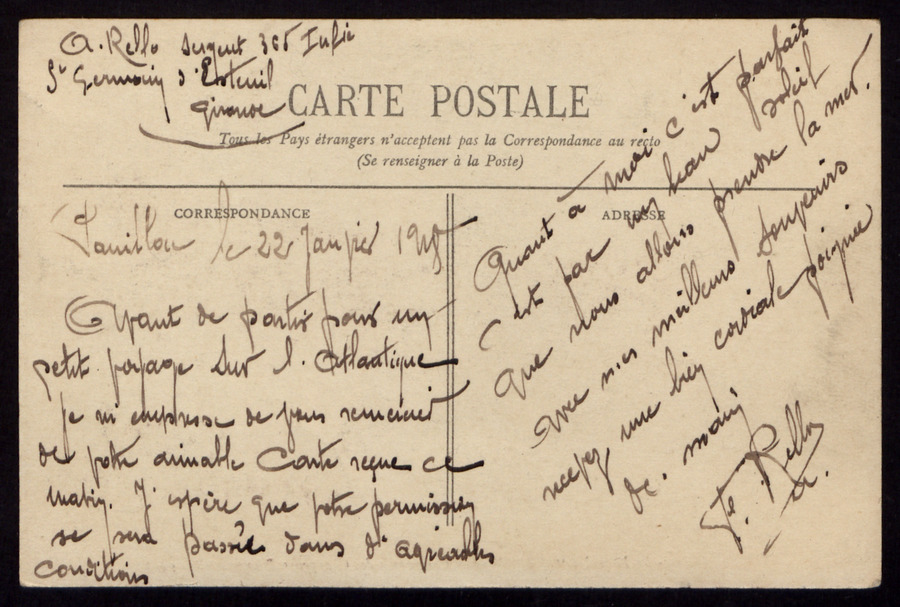 A. Rello Sergent 306 Infie
St Germain d'Esteuil
Gironde
CARTE POSTALE
Tous les Pays étrangers n'acceptent pas la Correspondance au recto
(Se renseigner à la Poste)
CORRESPONDANCE
ADRESSE
Pauillac le 22 Janvier 1915
Avant de partir pour un
petit voyage sur l'Atlantique
je m'empresse de vous remercier
de votre aimable Carte reçue ce
matin. J'espère que votre permission
se sera passée dans d'agréables
conditions
Quant à moi c'est parfait
c'est par un beau soleil
que nous allons prendre la mer.
Avec mes meilleurs souvenirs
recevez une bien cordiale poignée
de main
A. Rello